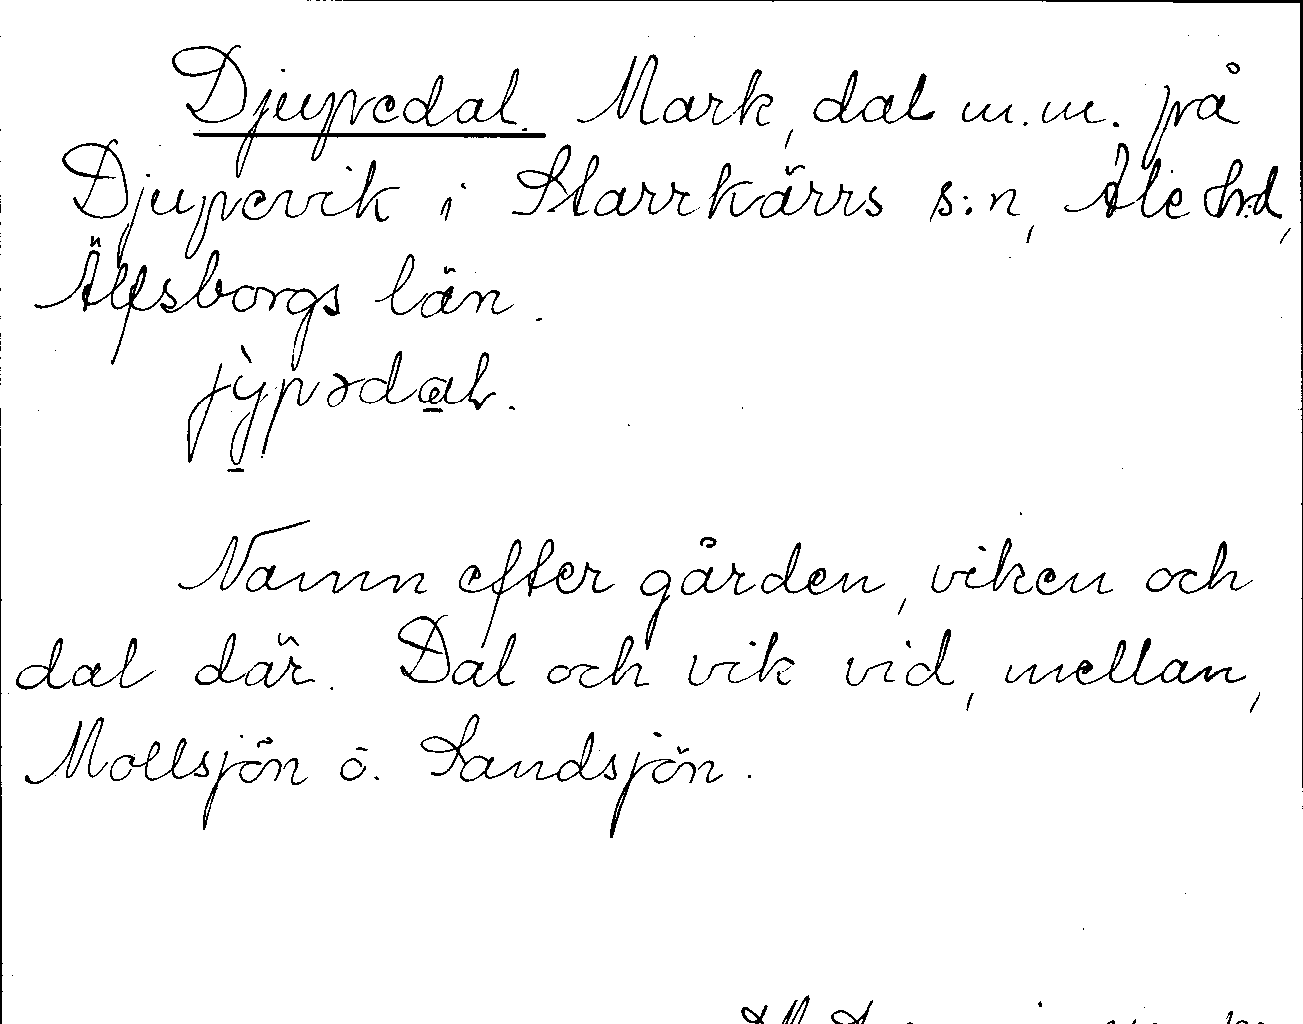 Djupedal. Mark, dal m.m. på
Djupevik i Starrkärrs s:n, Ale hd,
Älfsborgs län.
jỳ̠pəda̠L.
Namn efter gården, viken och
dal där. Dal och vik vid, mellan,
Mollsjön o. Sandsjön.